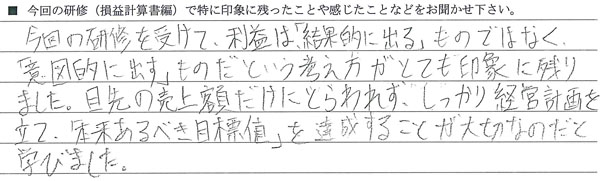 ■ 今回の研修（損益計算書編）で特に印象に残ったことや感じたことなどをお聞かせ下さい。
今回の研修を受けて、利益は「結果的に出る」ものではなく、
「意図的に出す」ものだという考え方がとても印象に残り
ました。目先の売上額だけにとらわれず、しっかり経営計画を
立て、「本来あるべき目標値」を達成することが大切なのだと
学びました。